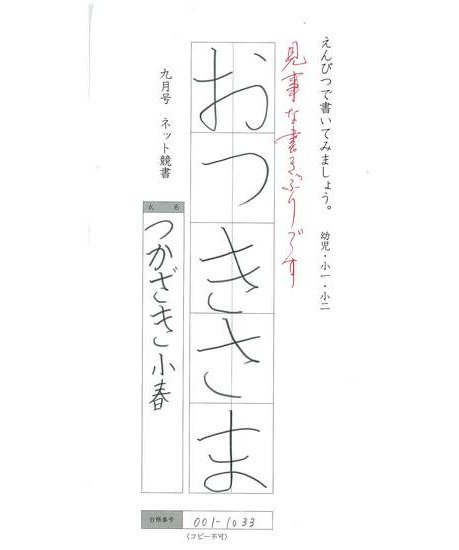 えんぴつで書いてみましょう。　幼児・小一・小二
見事な書きぶりです
おつきさま
九月号　ネット競書
氏名
つかざきこ小春
台帳番号
001-1033
(コピー不可)